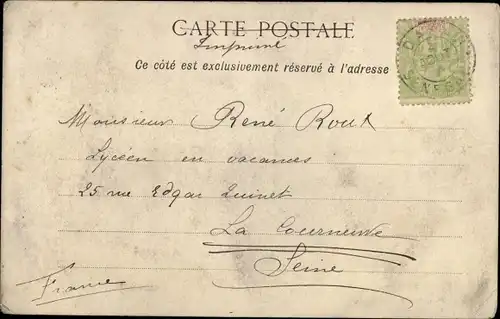 CARTE POSTALE
Imprimé
Ce côté est exclusivement réservé à l'adresse
Monsieur René Roux
Lycéen en vacances
25 rue Edgar Quinet
La Courneuve
Seine
France